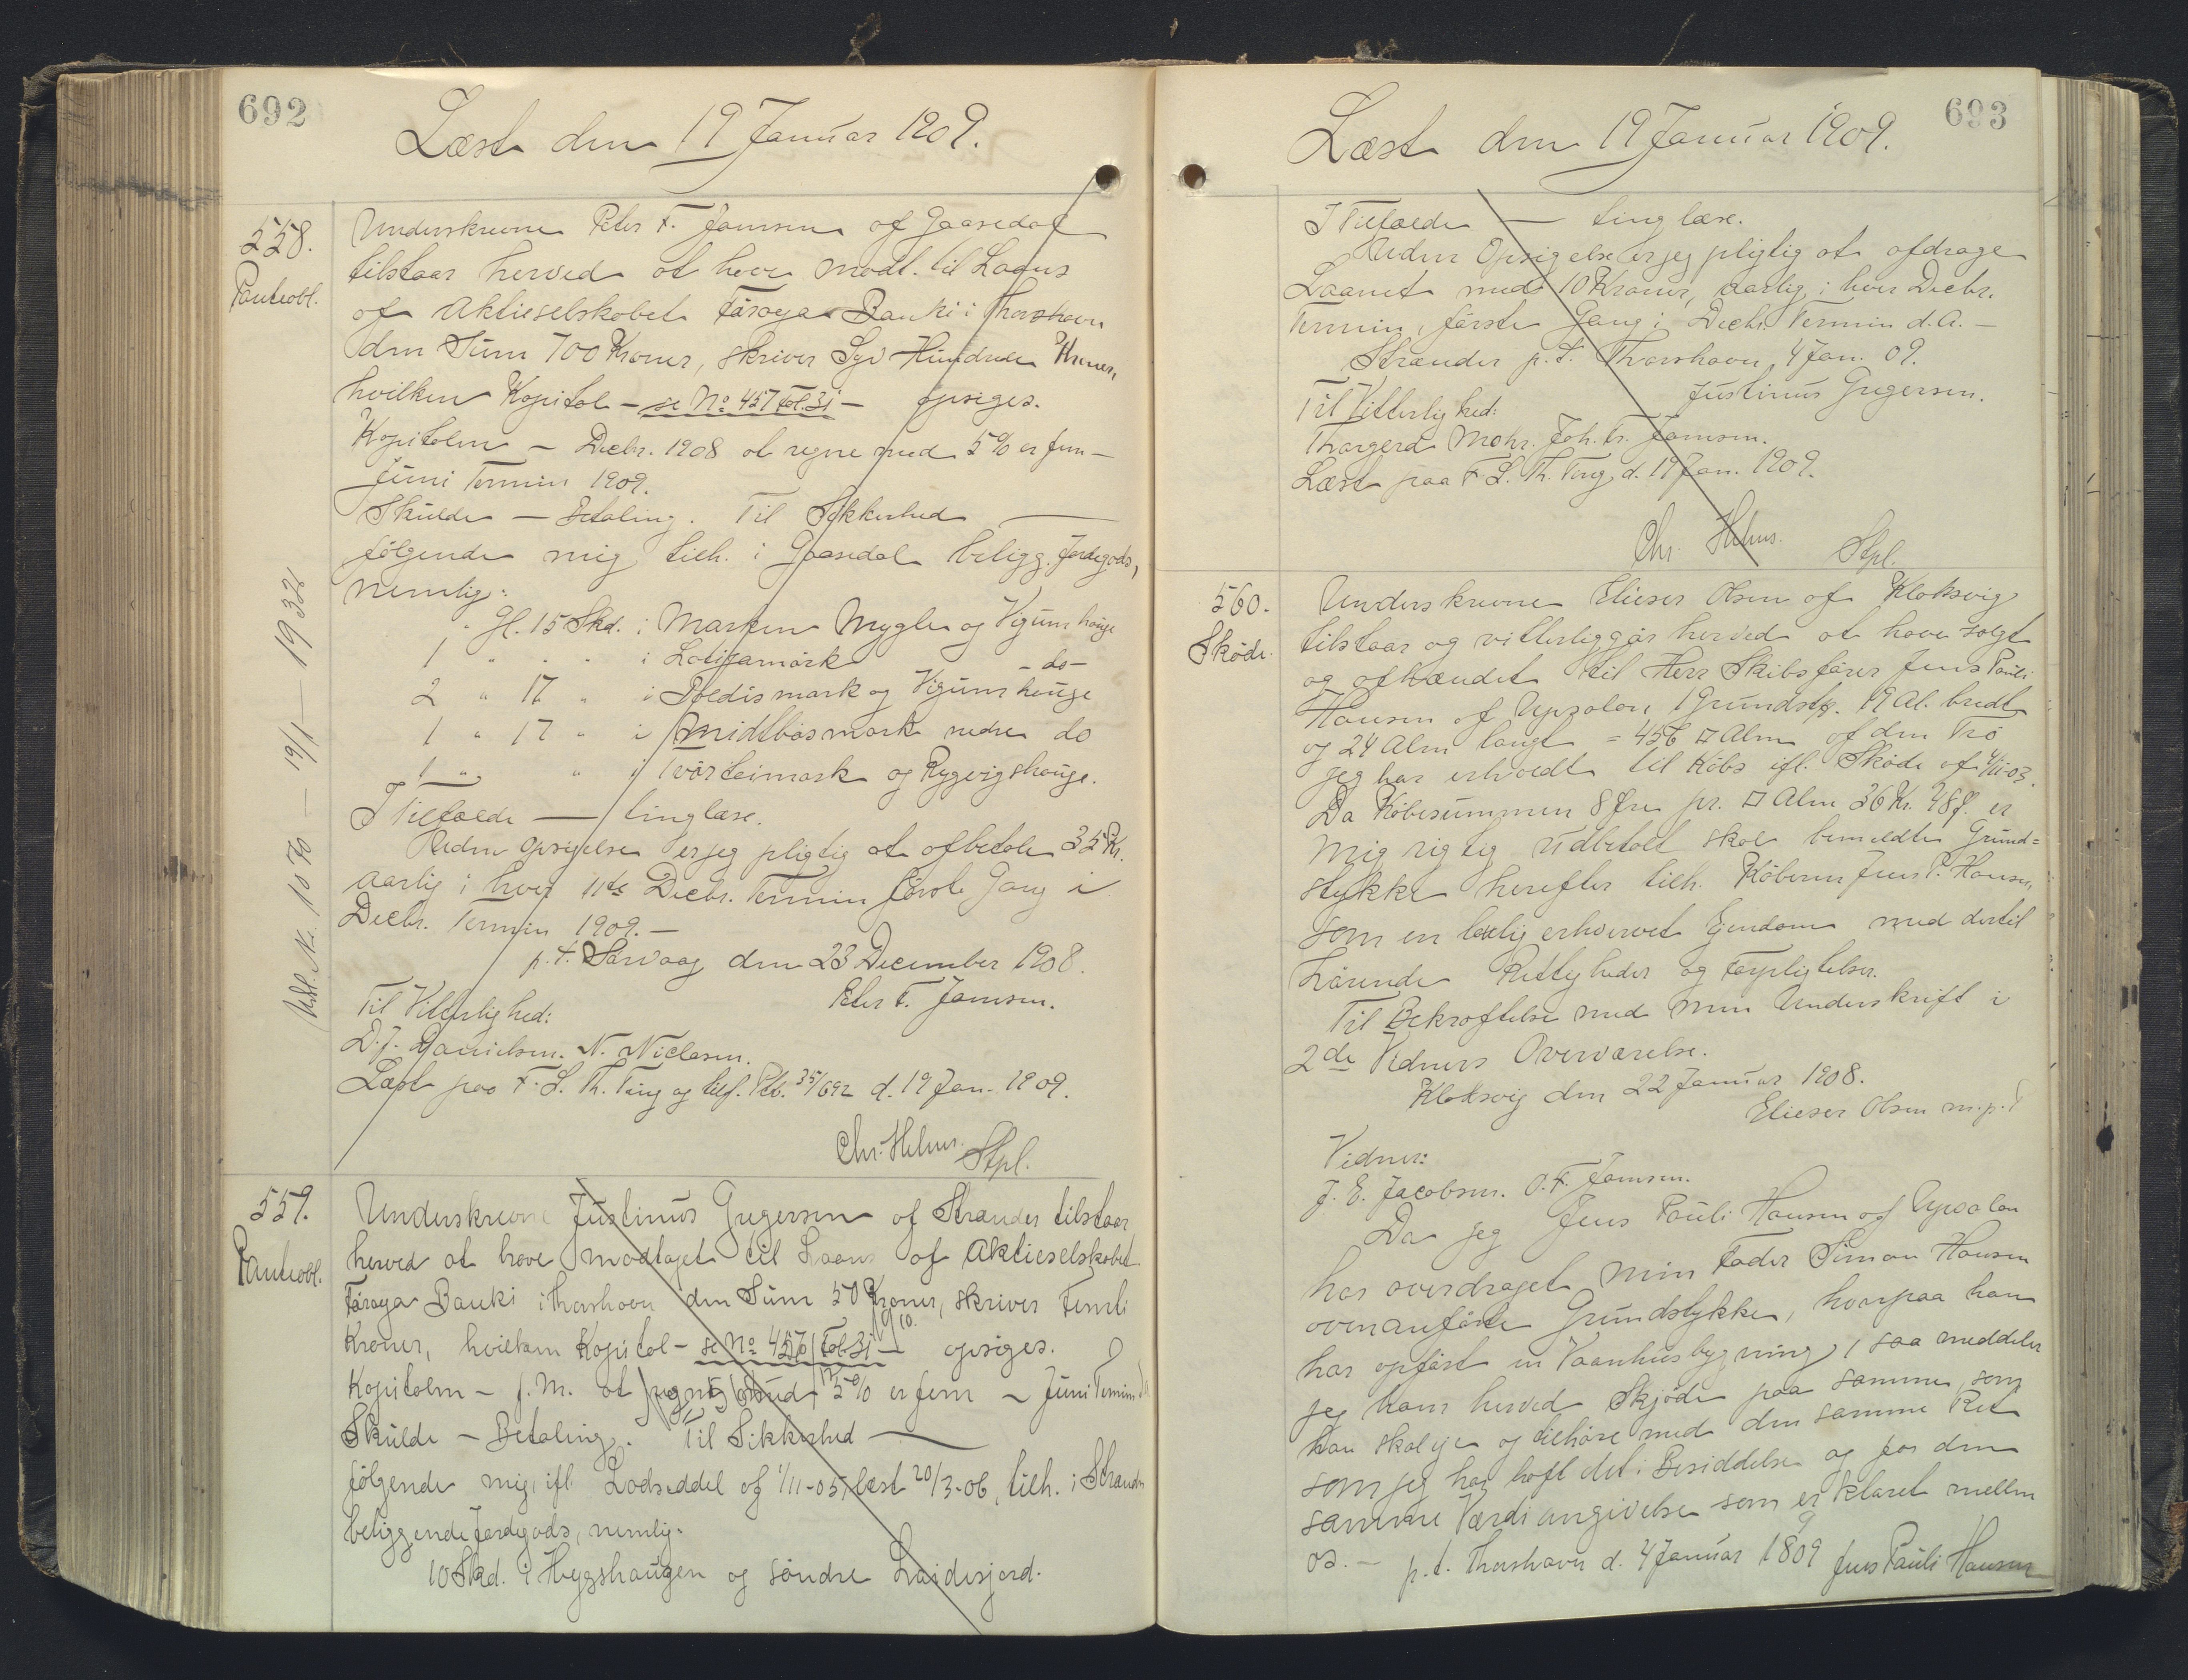 692
Læst den 19 Januar 1909.
558.
Panteobl.
Underskrevne Peter F. Joensen af Gaasedal
tilstaar herved at have modt. til Laans
af Aktieselskabet Føroya Banki i Thorshavn
den Sum 700 Kroner, skriver Syv Hundrede Kroner,
hvilken Kapital – se No 457 Fol. 31 – opsiges.
Kapitalen – Decbr. 1908 at regne med 5% er fem –
Juni Termin 1909.
Skulde – Betaling. Til Sikkerhed —
følgende mig tilh. i Gaasedal beligg. Jordegods,
nemlig:
" Gl. 15 Skd. i Marken Mygle og Vigums hauge
1 " " " i
2 " 17 " i mark og Vigums hauge
1 " 17 " i Midtbøsmark nedre do
1 " " i og Rygvigshauge.
I Tilfælde — tinglæse.
Uden Opsigelse er jeg pligtig at afbetale 35 Kr.
aarlig i hver 11te Decbr. Termin første Gang i
Decbr. Termin 1909. –
p. t. Sørvaag den 23 December 1908.
Peter F. Joensen.
Til Vitterlighed:
D. J. Danielsen. N. Niclasen.
Læst paa F. S. Th. Ting og tilf. Ptb. 35/692 d. 19 Jan. 1909.
Chr. Helms. Stpl.
Udsl. No. 1070 – 19/1 – 1932
559.
Panteobl.
Underskrevne Justinus Gregersen af Strænder tilstaar
herved at have modtaget til Laans af Aktieselskabet
Føroya Banki i Thorshavn den Sum 50 Kroner, skriver Femti
Kroner, hvilken Kapital – se No 457 Fol. 31 – opsiges.
Kapitalen – f. M. at regne med 5% er fem – Juni Termin
Skulde – Betaling. Til Sikkerhed —
følgende mig ifl. Lodseddel af 1/11-05, læst 20/3-06, tilh. i Strænder
beliggende Jordegods, nemlig:
10 Skd. i Hygshaugen og søndre
693
Læst den 19 Januar 1909.
I Tilfælde — tinglæse.
Uden Opsigelse er jeg pligtig at afdrage
Laanet med 10 Kroner, aarlig i hver Decbr.
Termin, første Gang i Decbr. Termin d. A. –
Strænder p. t. Thorshavn 4 Jan. 09.
Justinus Gregersen.
Til Vitterlighed:
Thorgerd Mohr. Joh. Fr. Joensen.
Læst paa F. S. Th. Ting d. 19 Jan. 1909.
Chr. Helms. Stpl.
560.
Skøde.
Underskrevne Elieser Olsen af Klaksvig
tilstaar og vitterliggør herved at have solgt
og afhændet til Herr Skibsfører Jens Pauli
Hansen af Upsalon, 1 Grundstk. 19 Al. bredt
og 24 Alen langt = 456 □ Alen af den Trø
jeg har erholdt til Købs ifl. Skøde af 4/11-03.
Da Købesummen 8 Øre pr. □ Alen 36 Kr. 48 Ø. er
mig rigtig udbetalt skal bemeldte Grund=
stykke herefter tilh. Køberen Jens P. Hansen,
som en lovlig erhvervet Ejendom med dertil
hørende Rettigheder og Forpligtelser.
Til Bekræftelse med min Underskrift i
2de Vidners Overværelse.
Klaksvig den 22 Januar 1908.
Elieser Olsen m. p. P
Vidner:
J. E. Jacobsen. O. F. Joensen.
Da jeg Jens Pauli Hansen af Upsalon
har overdraget min Fader Simon Hansen
ovenanførte Grundstykke, hvorpaa han
har opført en Vaanhusbygning, saa meddeler
jeg ham herved Skjøde paa samme, som
han skal eje og tilhøre med den samme Ret
som jeg har haft det i Besiddelse og for den
samme Værdiangivelse som er klaret mellem
os. – p. t. Thorshavn d. 4 Januar 1809 Jens Pauli Hansen
9